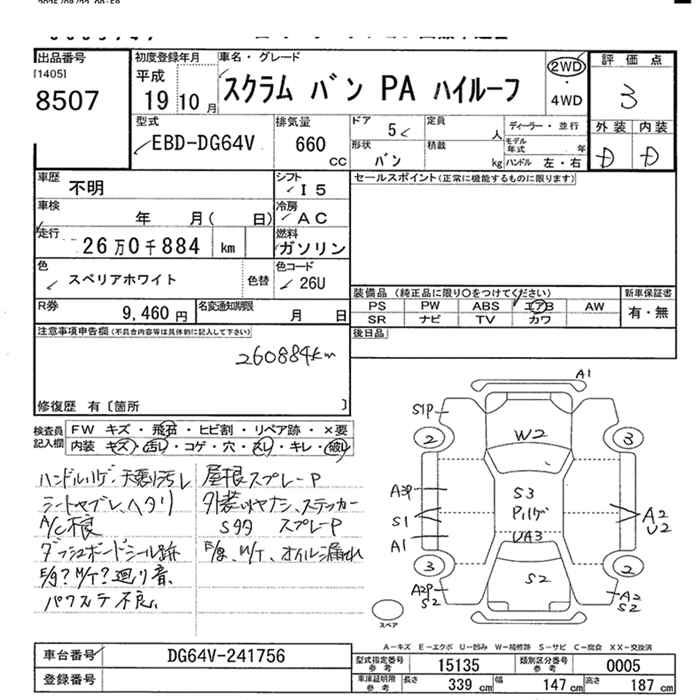 2025/08/22 00:58
出品番号
[1405]
8507
初度登録年月
平成
19 10 月
車名・グレード
スクラム バン PA ハイルーフ
2WD
・
4WD
評価点
3
外装 内装
D D
型式
EBD-DG64V
排気量
660
CC
ドア
5
定員
人
ディーラー・並行
形状
バン
積載
kg
モデル年式
年
ハンドル 左・右
車歴
不明
シフト
I 5
セールスポイント(正常に機能するものに限ります)
車検
年 月( 日)
冷房
AC
走行
26万0千884 km
燃料
ガソリン
色
スペリアホワイト
色替
色コード
26U
装備品(純正品に限り○をつけてください)
新車保証書
PS PW ABS エアB AW
SR ナビ TV カワ
有・無
R券
9,460 円
名変通知期限
月 日
後日品
注意事項申告欄(不具合内容等は具体的に記入して下さい)
260884km
修復歴 有〔箇所 〕
検査員
記入欄
FW キズ・飛石・ヒビ割・リペア跡・×要
内装 キズ・汚レ・コゲ・穴・スレ・キレ・破レ
ハンドルハゲ、天張り汚レ
シートヤブレ、ヘタリ
A/C不良
ダッシュボードシール跡
E/g?M/T?廻り音、
パワステ不良、
屋根スプレーP
ステッカー
スプレーP
M/T、オイル漏れ
A1
S1P
2
3
W2
A3P
S1
A1
S3
Pハゲ
UA3
A2
U2
3
2
A2P
S2
S2
A2
S2
スペア
A－キズ E－エクボ U－凹み W－補修跡 S－サビ C－腐食 XX－交換済
車台番号
DG64V-241756
型式指定番号
参考
15135
類別区分番号
参考
0005
登録番号
車庫証明用
参考
長さ
339 cm
幅
147 cm
高さ
187 cm